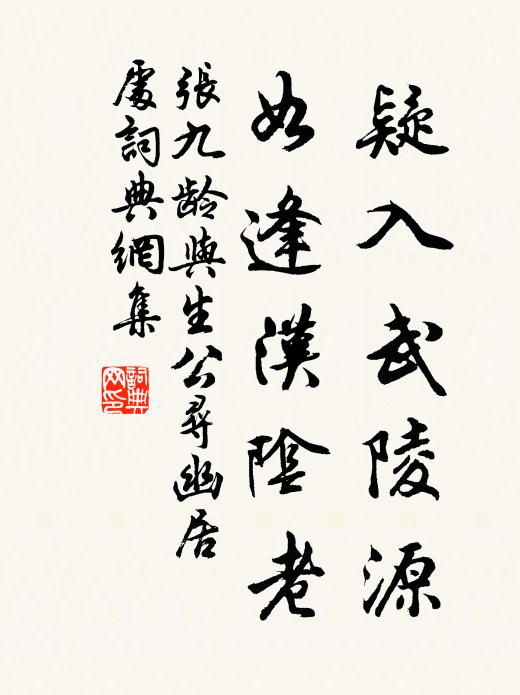 疑入武陵源
如逢漢陰老
張九龄與生公尋幽居
處詞典網集
詞典
网印